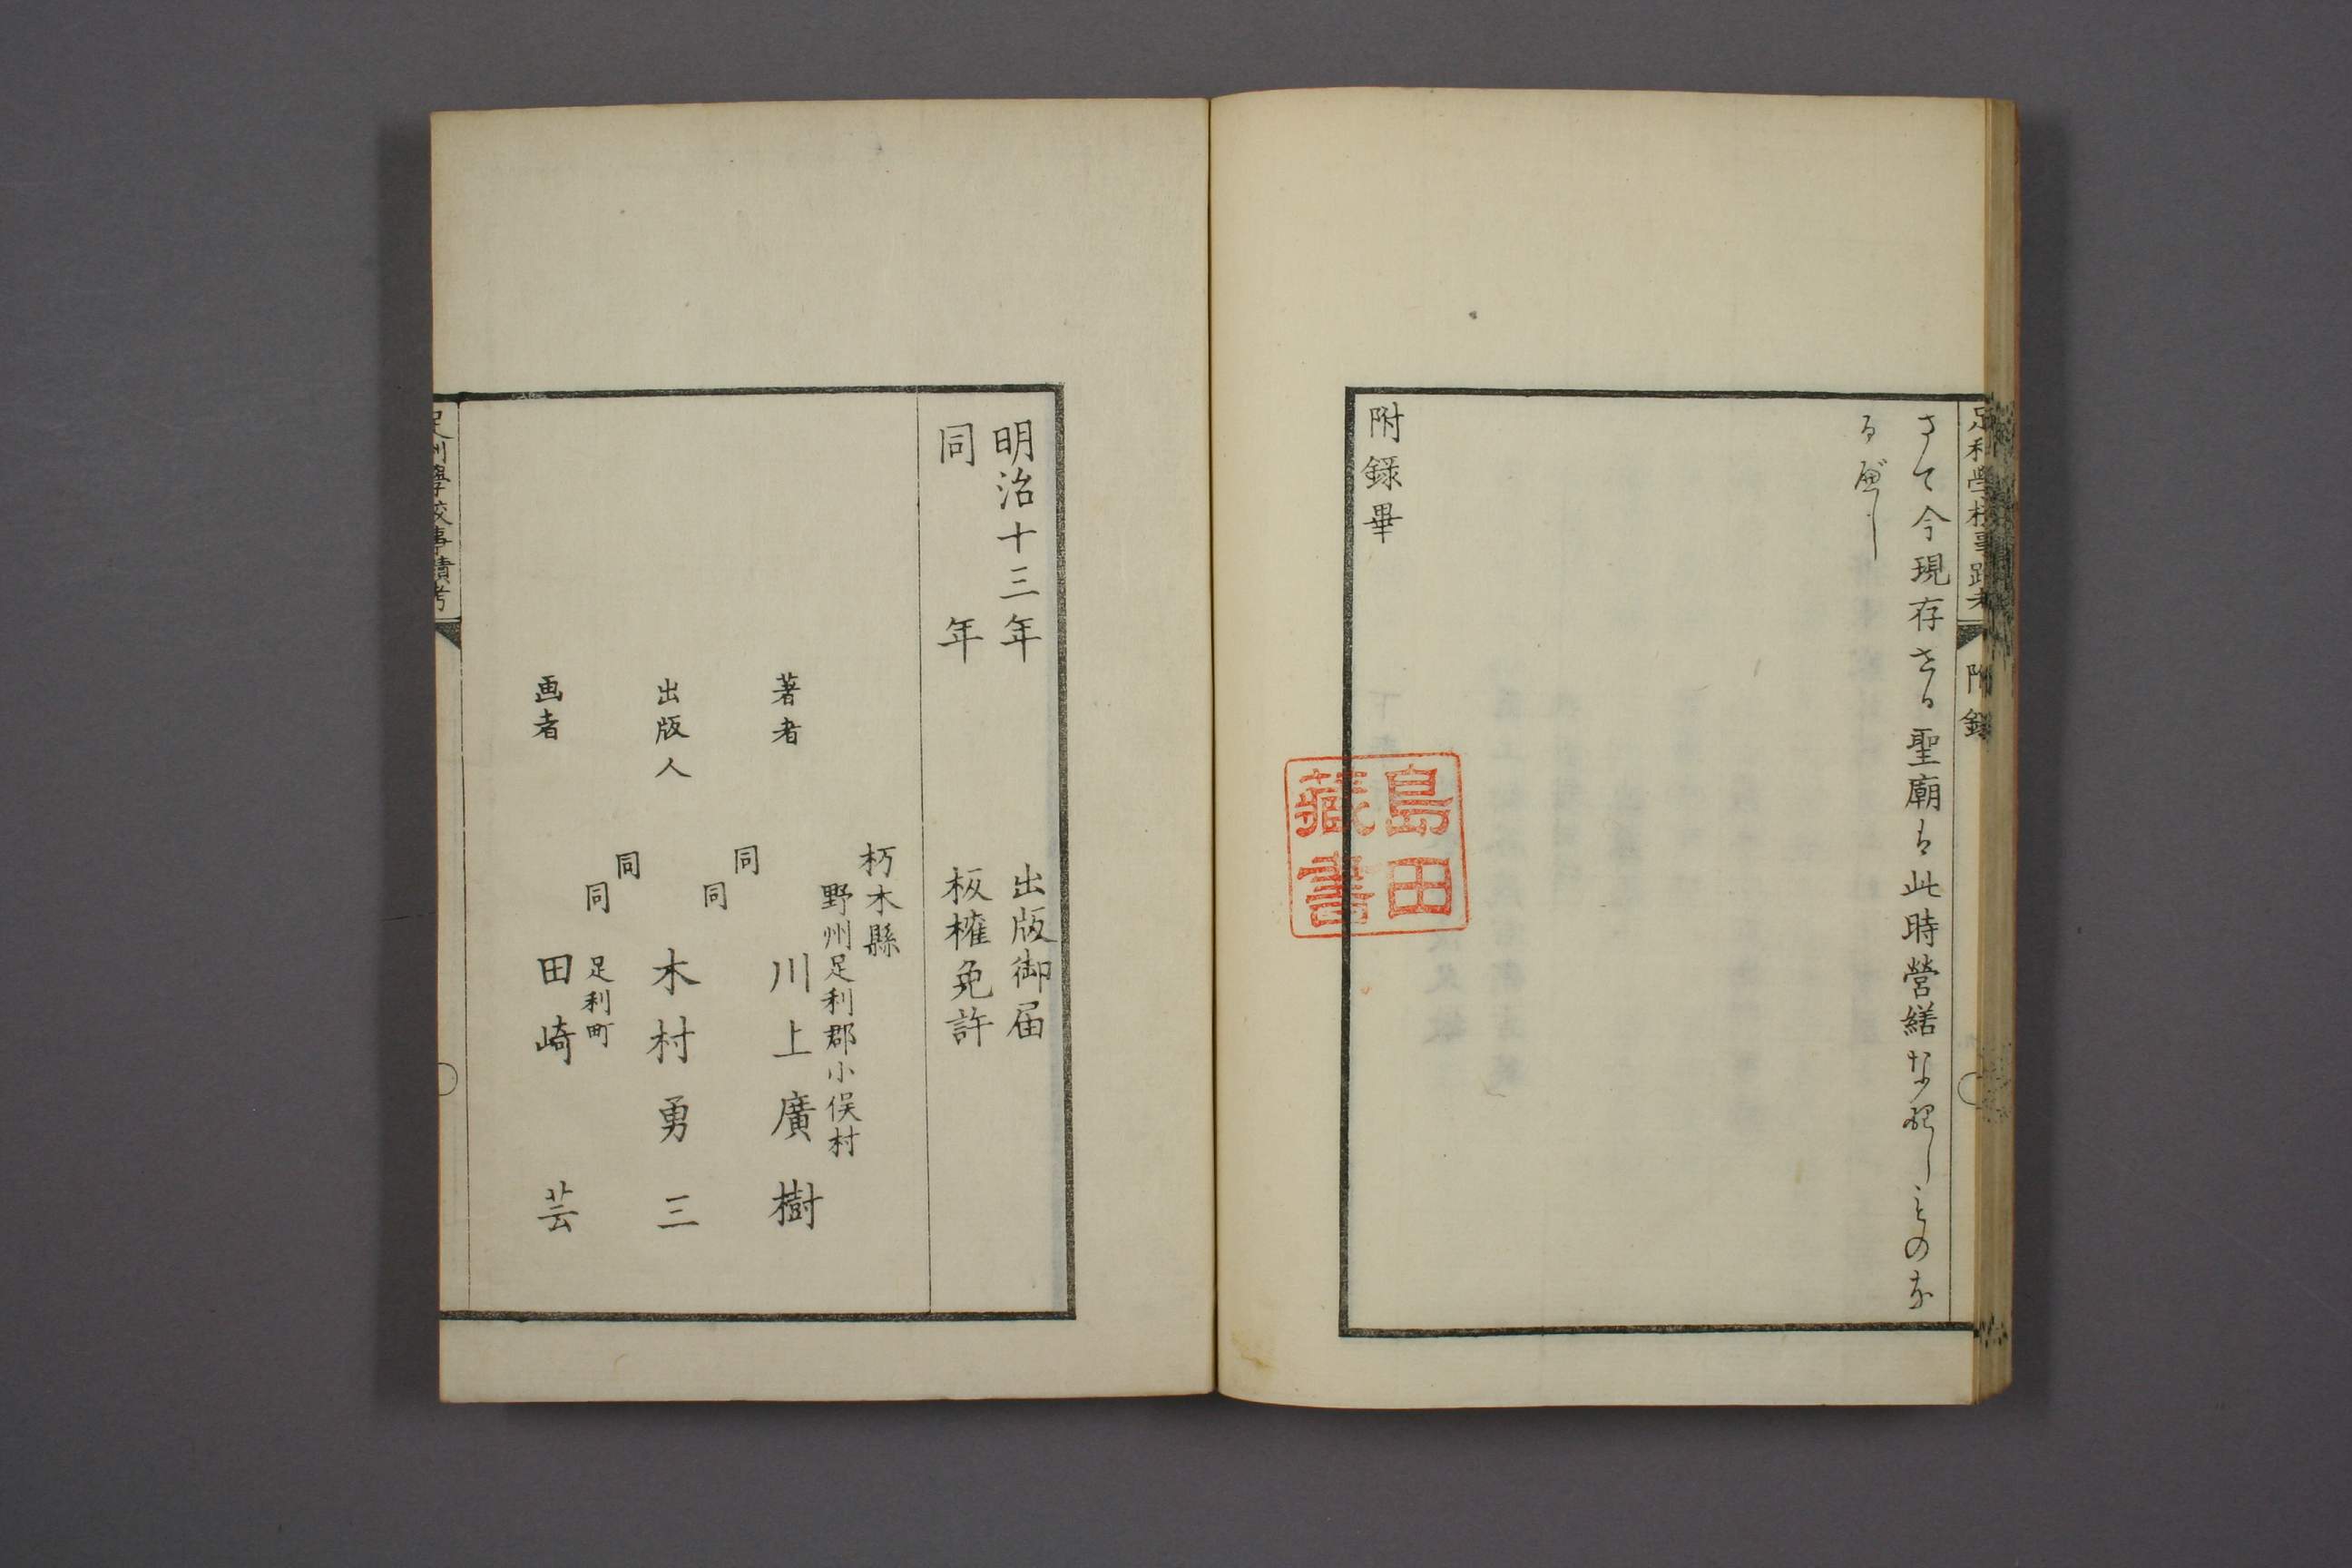 足利學校事蹟考
附錄
さて今現存せる聖廟は此時營繕なりしものな
るべし
附錄畢
島田
藏書
明治十三年 出版御届
同 年 板權免許
栃木縣
野州足利郡小俣村
著者 川上廣樹
同
同
出版人 木村勇三
同
同 足利町
画者 田崎 芸
足利學校事蹟考